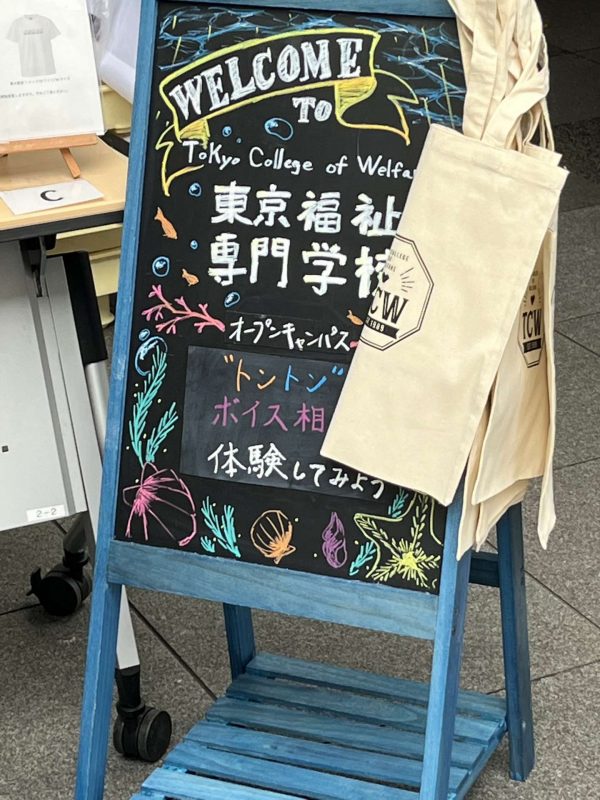 WELCOME
TO
Tokyo College of
東京福祉
専門学校
オープンキャンパス
"トントン"
ボイス相
体験してみよう
C
2-2
TCW
TCW